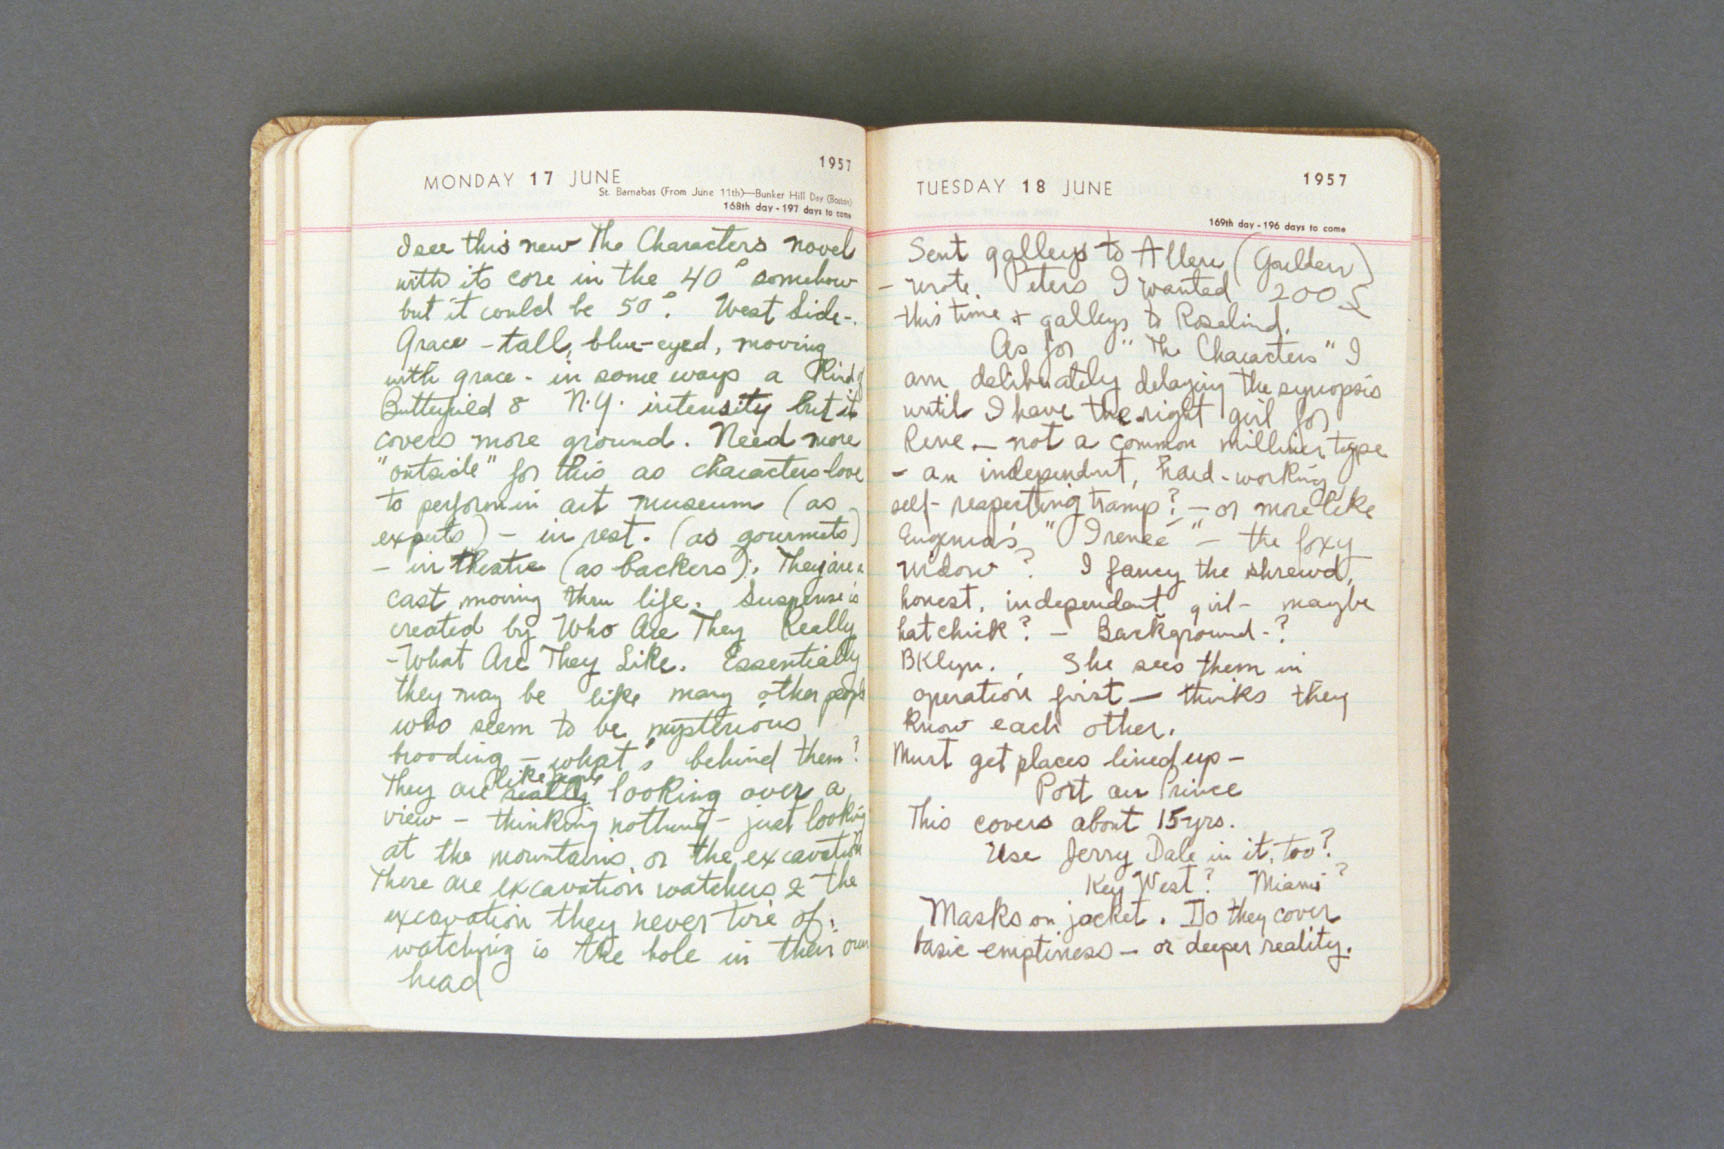 MONDAY 17 JUNE
1957
St. Barnabas (From June 11th)—Bunker Hill Day (Boston)
168th day - 197 days to come
I see this new The Characters novel
with its core in the 40s somehow
but it could be 50s. West Side-
Grace - tall, blue-eyed, moving
with grace - in some ways a kind of
Butterfield 8 N.Y. intensity but it
covers more ground. Need more
"outside" for this as characters love
to perform in art museum (as
experts) - in rest. (as gourmets)
- in theatre (as backers). They are a
cast moving thru life. Suspense is
created by Who Are They Really
-What Are They Like. Essentially
they may be like many other people
who seem to be mysterious,
brooding - what's behind them?
They are like looking over a
view - thinking nothing - just looking
at the mountains, or the excavation
There are excavation watchers & the
excavation they never tire of
watching is the hole in their own
head
TUESDAY 18 JUNE
1957
169th day - 196 days to come
Sent galleys to Allen (Goulden)
- wrote Peters I wanted 200
this time + galleys to Rosalind.
As for "The Characters" I
am deliberately delaying the synopsis
until I have the right girl for
Rene - not a common milliner type
- an independent, hard-working,
self-respecting tramp? - or more like
Eugenia's "Irenee" - the foxy
widow? I fancy the shrewd,
honest, independent girl - maybe
hat chick? - Background-?
BKlyn. She sees them in
operation first - thinks they
know each other.
Must get places lined up -
Port au Prince
This covers about 15 yrs.
Use Jerry Dale in it, too?
Key West? Miami?
Masks on jacket. Do they cover
basic emptiness - or deeper reality.